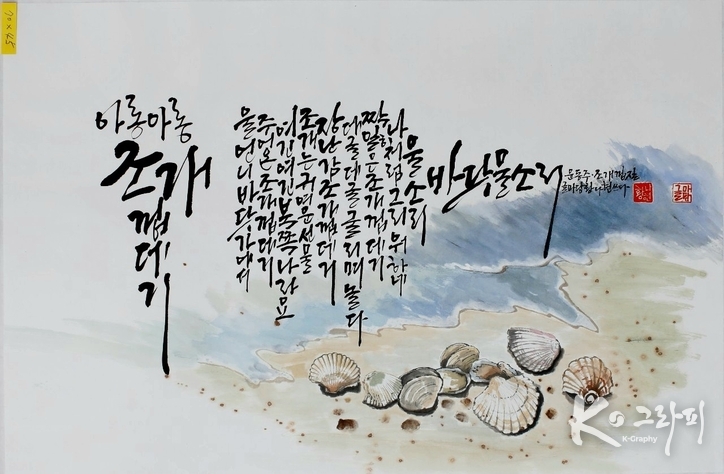 70 x 45
아롱아롱
조개
껍데기
울언니바닷가에서
주어온조개껍데기
여긴여긴북쪽나라요
조개는귀여운선물
장난감조개껍데기
데굴데굴굴리며놀다
짝잃은조개껍데기
나처럼그리워하네
물소리
바닷물소리
윤동주·조개껍질
쓰다
K 그라피
K-Graphy